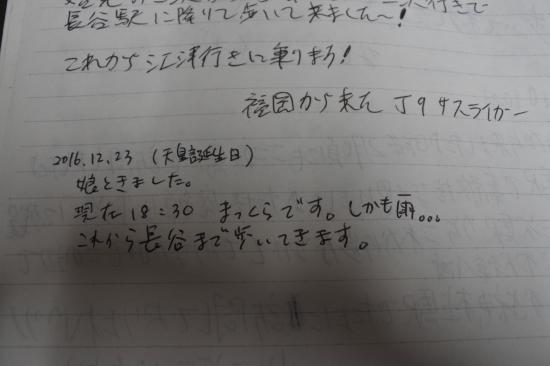 長谷駅に降りて歩いて来ました〜!
これから江津行きに乗りまう!
福岡から来た J94スライガー
2016.12.23 (天皇誕生日)
娘ときました。
現在18:30 まっくらです。しかも雨...
これから長谷まで歩いてきます。